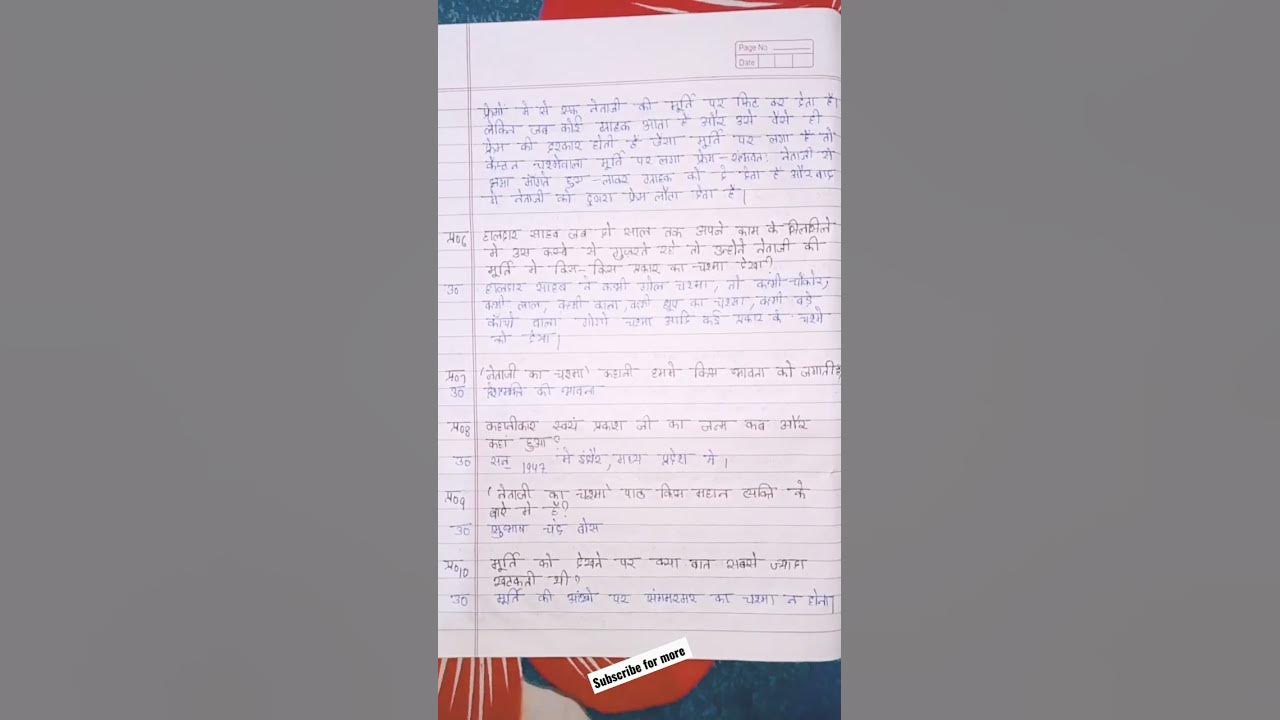 Page No
Date
फ्रेमों में से एक नेताजी की मूर्ति पर फिट कर देता है।
लेकिन जब कोई ग्राहक आता है और उसे वैसे ही
फ्रेम की दरकार होती है जैसा मूर्ति पर लगा है तो
कैप्टन चश्मेवाला मूर्ति पर लगा फ्रेम - संभवतः नेताजी से
क्षमा माँगते हुए - लाकर ग्राहक को दे देता है और बाद
में नेताजी को दूसरा फ्रेम लौटा देता है।
प्र०6 हालदार साहब जब दो साल तक अपने काम के सिलसिले
में उस कस्बे से गुजरते रहे तो उन्होंने नेताजी की
मूर्ति में किस-किस प्रकार का चश्मा देखा?
उ० हालदार साहब ने कभी गोल चश्मा, तो कभी चौकोर,
कभी लाल, कभी काला, कभी धूप का चश्मा, कभी बड़े
काँचों वाला गोगो चश्मा आदि कई प्रकार के चश्मे
को देखा।
प्र०7 'नेताजी का चश्मा' कहानी हममे किस भावना को जगाती है?
उ० देशभक्ति की भावना
प्र०8 कहानीकार स्वयं प्रकाश जी का जन्म कब और
कहां हुआ?
उ० सन् 1947 में इंदौर, मध्य प्रदेश में।
प्र०9 'नेताजी का चश्मा' पाठ किस महान व्यक्ति के
बारे में है?
उ० सुभाष चंद्र बोस
प्र०10 मूर्ति को देखते पर क्या बात सबसे ज्यादा
खटकती थी?
उ० मूर्ति की आंखो पर संगमरमर का चश्मा न होना।
Subscribe for more